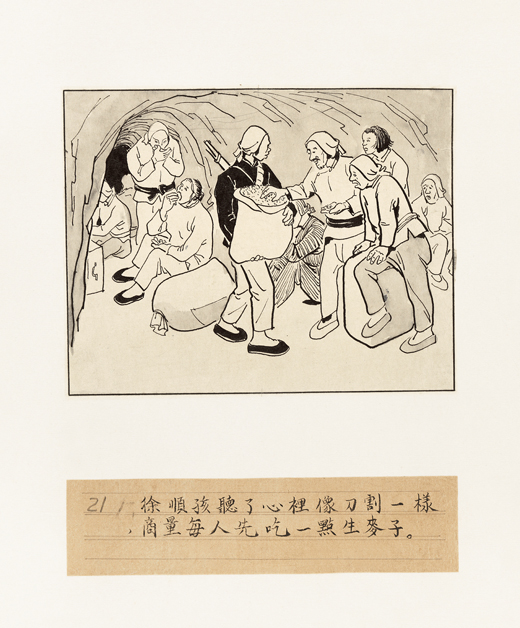 21 徐順孩聽了心裡像刀割一樣
，商量每人先吃一點生麥子。